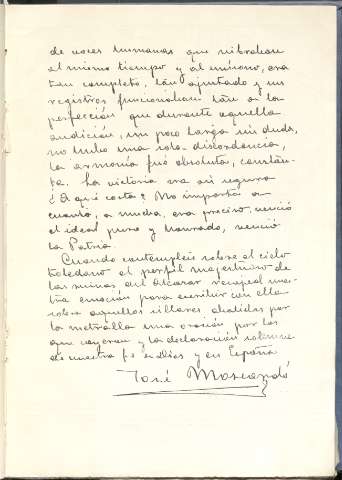 de voces humanas que vibraban
al mismo tiempo y al unísono, era
tan completo, tan ajustado y sus
registros funcionaban tan a la
perfección que durante aquella
audición, un poco larga sin duda,
no hubo una sola disonancia,
la armonía fué absoluta, constan-
te. La victoria era así segura
¿A qué costa? No importa a
cuanto, a mucha, era preciso, venció
el ideal puro y honrado, venció
la Patria.
Cuando contempleis sobre el cielo
toledano el perfil majestuoso de
las ruinas, del Alcázar recoged vues-
tra emoción para escribir con ella
sobre aquellos sillares abatidos por
la metralla una oración, por los
que cayeron y la declaración solemne
de nuestra fe en Dios y en España
José Moscardó